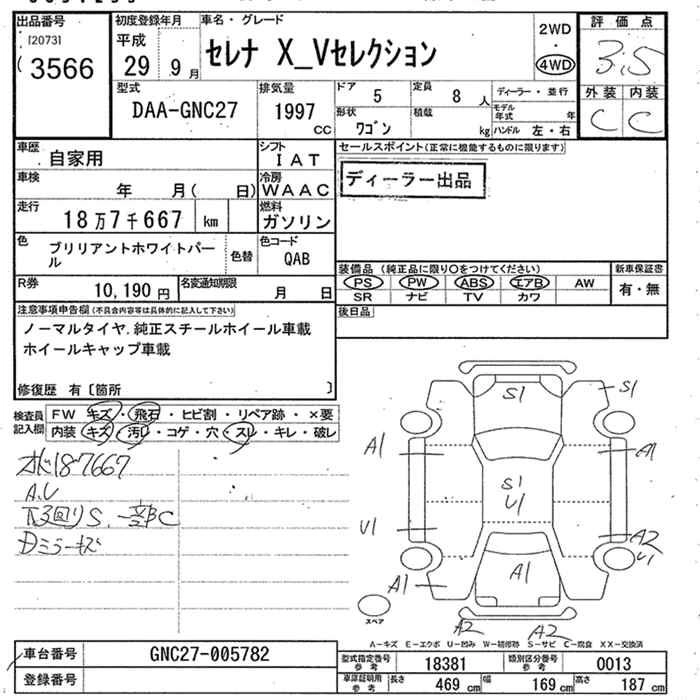 出品番号
[2073]
3566
初度登録年月
平成
29年9月
車名・グレード
セレナ X_Vセレクション
2WD
・
4WD
評価点
3.5
外装 内装
C C
型式
DAA-GNC27
排気量
1997
cc
ドア
5
定員
8人
形状
ワゴン
積載
kg
ディーラー・並行
モデル年式 年
ハンドル 左・右
車歴
自家用
シフト
IAT
車検
年 月( 日)
冷房
WAAC
走行
18万7千667 km
燃料
ガソリン
色
ブリリアントホワイトパール
色替
色コード
QAB
R券
10,190円
名変通知期限
月 日
セールスポイント(正常に機能するものに限ります)
ディーラー出品
装備品(純正品に限り○をつけてください)
PS PW ABS エアB AW
SR ナビ TV カワ
新車保証書
有・無
後日品
注意事項申告欄(不具合内容等は具体的に記入して下さい)
ノーマルタイヤ.純正スチールホイール車載
ホイールキャップ車載
修復歴 有〔箇所 〕
検査員記入欄
FW キズ・飛石・ヒビ割・リペア跡・×要
内装 キズ・汚レ・コゲ・穴・スレ・キレ・破レ
187667
A.U
下廻りS、一部C
Dミラーキズ
S1
S1
A1
A1
S1
U1
U1
A2
U1
A1
A1
A2
A2
スペア
A-キズ E-エクボ U-凹み W-補修跡 S-サビ C-腐食 XX-交換済
車台番号
GNC27-005782
登録番号
型式指定番号参考
18381
類別区分番号参考
0013
車庫証明用参考
長さ 469 cm
幅 169 cm
高さ 187 cm